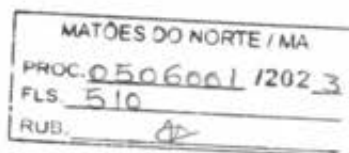 MATÕES DO NORTE / MA
PROC. 0506001 /2023
FLS. 510
RUB.